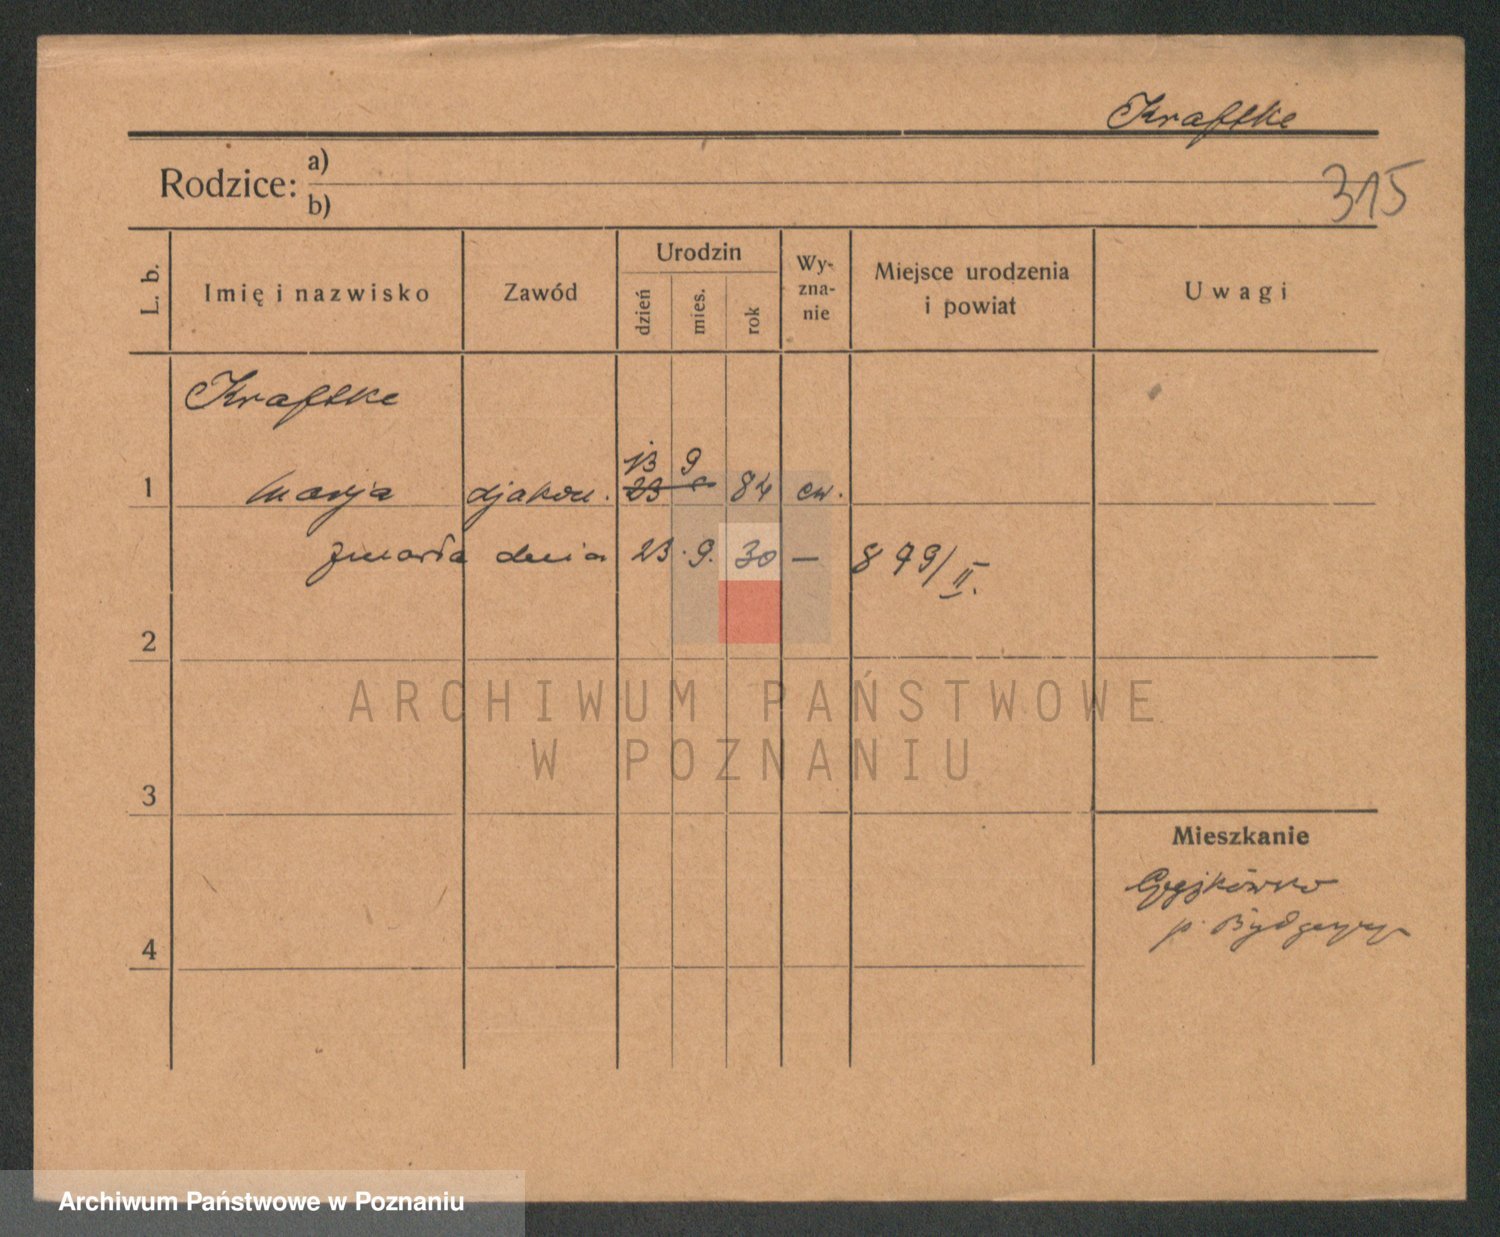 Kraftke
Rodzice: a)
b)
315
L. b.
Imię i nazwisko
Zawód
Urodzin
dzień
mies.
rok
Wy-
zna-
nie
Miejsce urodzenia
i powiat
Uwagi
Kraftke
13 9
1 Marja djakon. 23 84 ew.
zmarła dnia 23.9. 30 — 879/II.
2
ARCHIWUM PAŃSTWOWE
W POZNANIU
3
Mieszkanie
p. Bydgoszcz
4
Archiwum Państwowe w Poznaniu